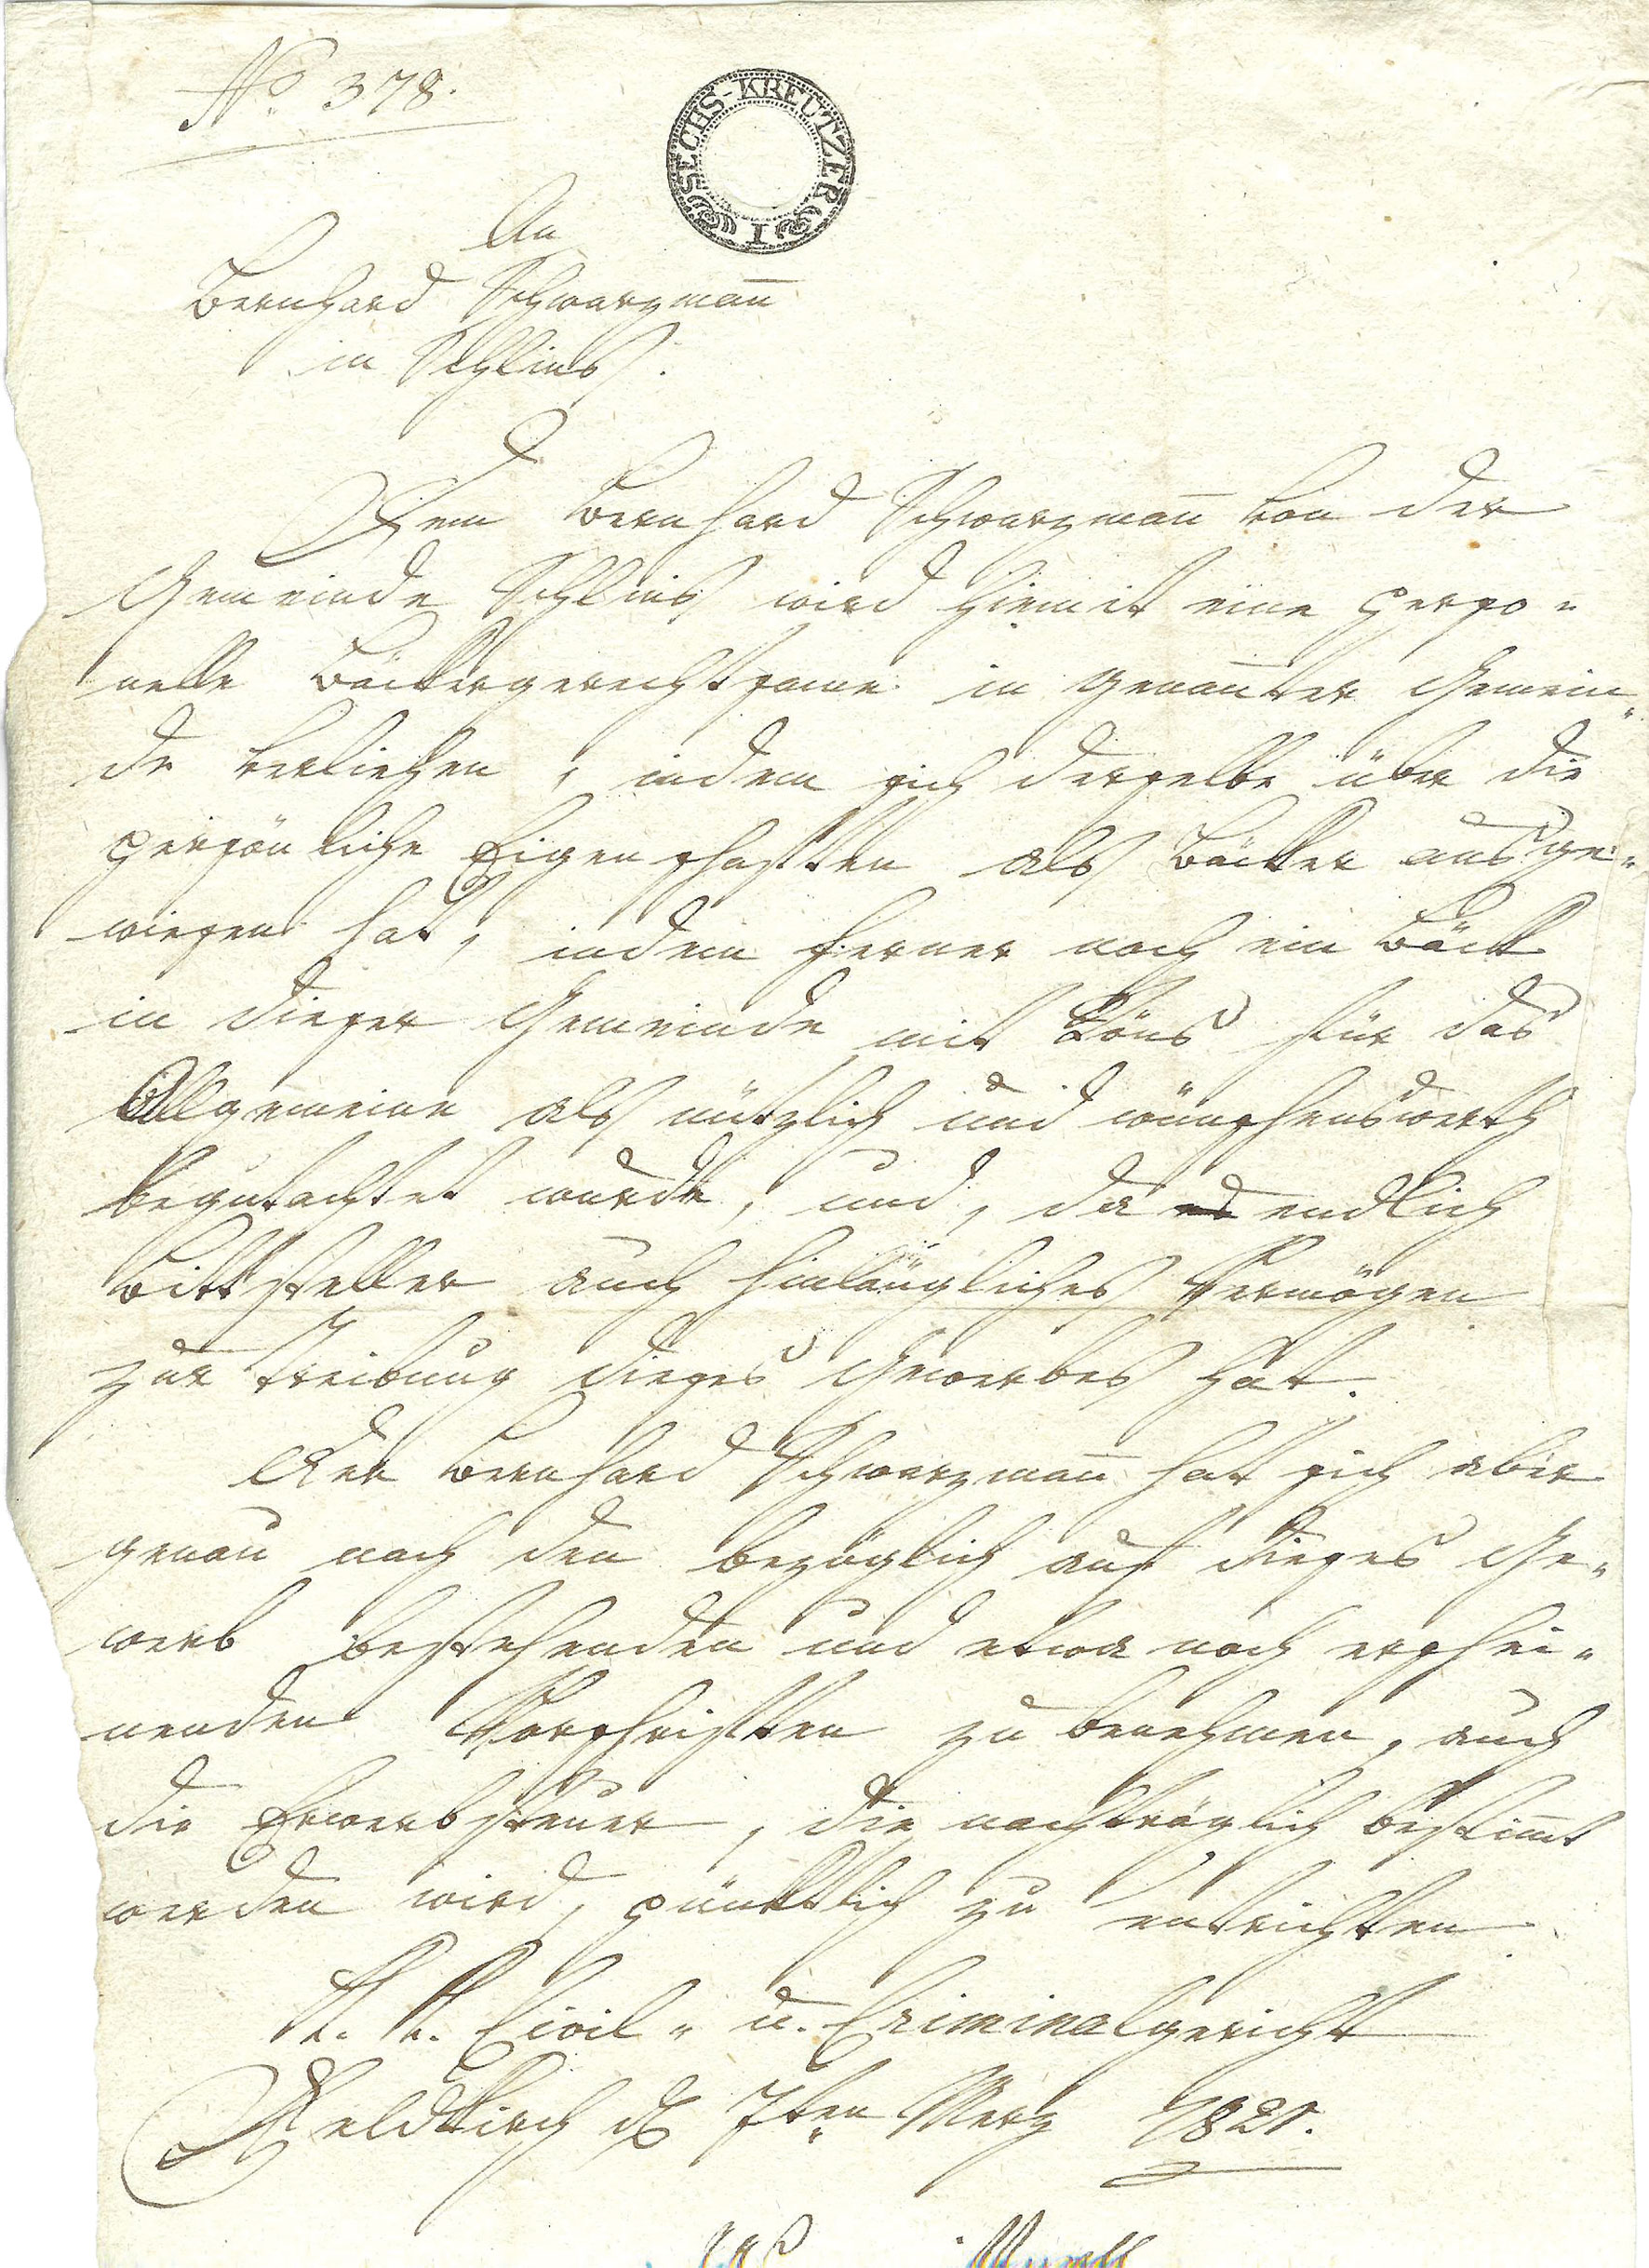 No. 378.
SECHS-KREUTZER
1
An
Bernhard Schwarzmañ
in Schlins.
Dem Bernhard Schwarzmañ von der
Gemeinde Schlins wird hiemit eine perso-
nelle Bäckergerechtsame in genañter Gemein-
de verliehen, indem sich derselbe über die
persönliche Eigenschaften als Bäcker ausge-
wiesen hat, indem ferner noch ein Bäck
in dieser Gemeinde mit Röns für das
Allgemeine als nützlich und wünschenswerth
begutachtet wurde, und, da endlich
Bittsteller auch hinlängliches Vermögen
zur Treibung dieses Gewerbes hat.
Der Bernhard Schwarzmañ hat sich aber
genau nach den bezüglich auf dieses Ge-
werb bestehenden und etwa noch erschei-
nenden Vorschriften zu benehmen, auch
die Erwerbsteuer, die nachträglich bestim̄t
werden wird, pünktlich zu entrichten.
K. K. Civil- u. Criminalgericht
Feldkirch d. 7ten Merz 1821.